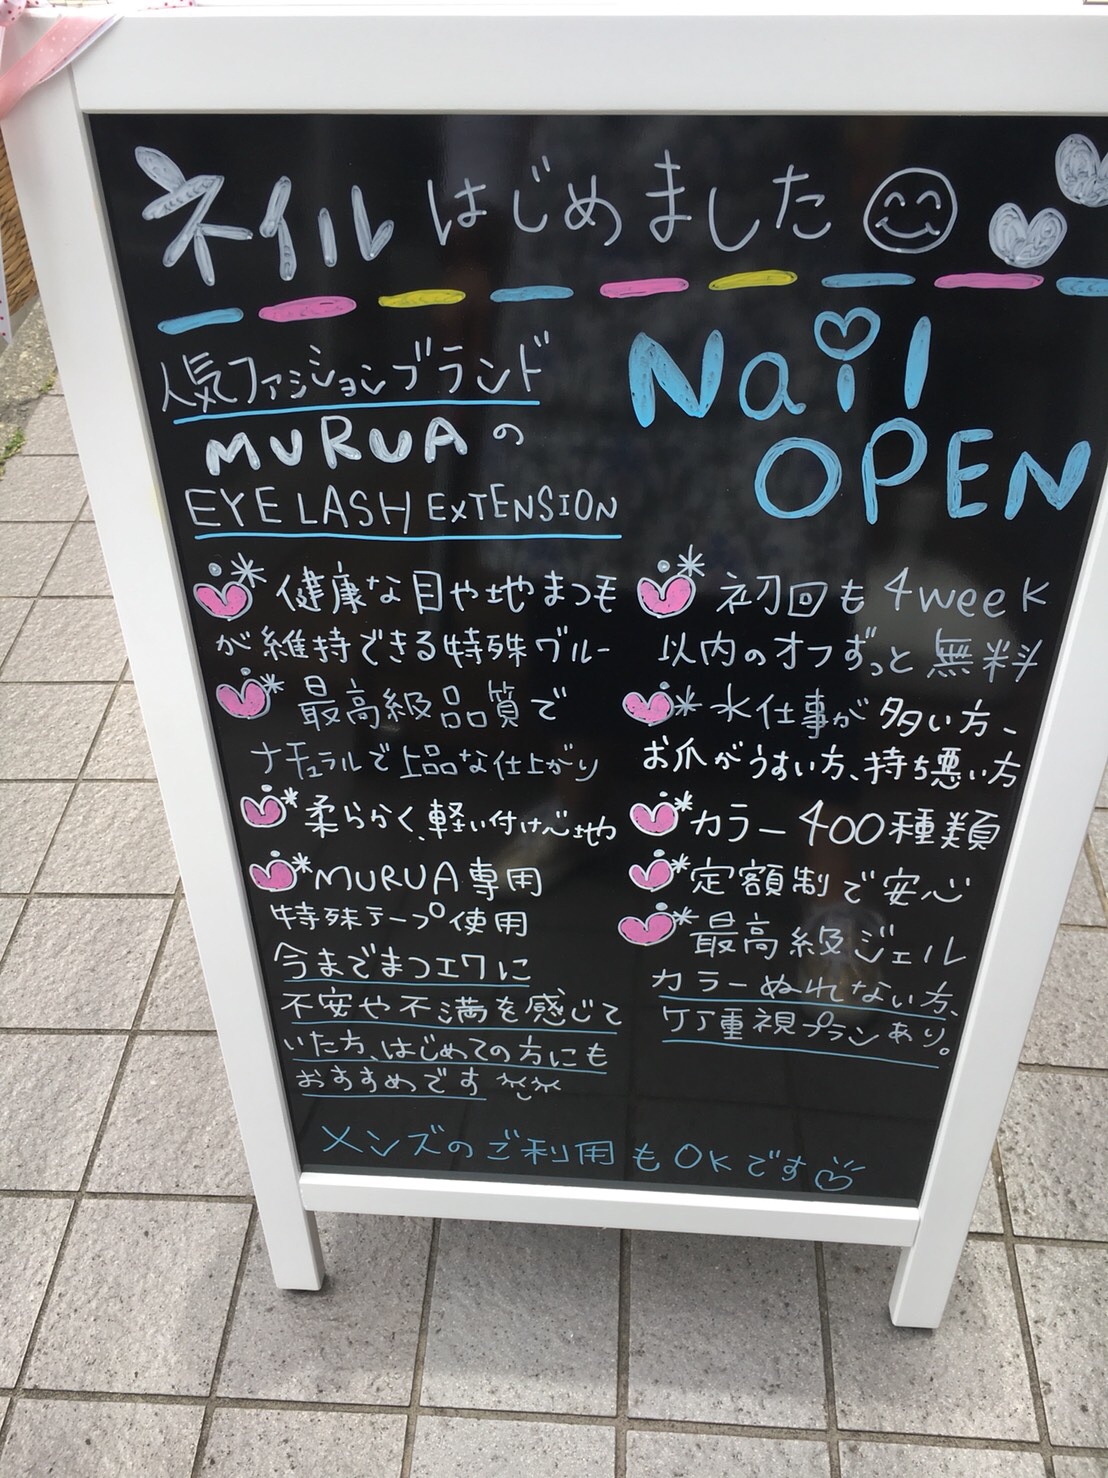 ネイルはじめました
人気ファションブランド
MURUAの
EYE LASH EXTENSION
健康な目や地まつ毛
が維持できる特殊グルー
最高級品質で
ナチュラルで上品な仕上がり
柔らかく、軽い付け心地
MURUA専用
特殊テープ使用
今までまつエクに
不安や不満を感じて
いた方、はじめての方にも
おすすめです
Nail
OPEN
初回も4week
以内のオフずっと無料
水仕事が多い方、
お爪がうすい方、持ち悪い方
カラー400種類
定額制で安心
最高級ジェル
カラーぬれない方、
ケア重視プランあり。
メンズのご利用もOKです